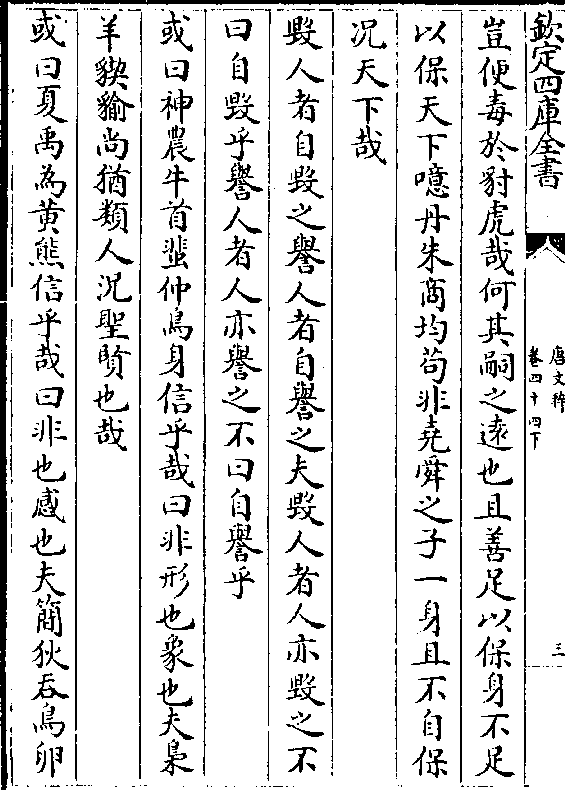 欽定四庫全書
唐文粹
卷四十四下
三
豈便毒於豺虎哉何其嗣之遠也且善足以保身不足
以保天下噫丹朱商均苟非堯舜之子一身且不自保
况天下哉
毀人者自毀之譽人者自譽之夫毀人者人亦毀之不
曰自毀乎譽人者人亦譽之不曰自譽乎
或曰神農牛首蜚仲鳥身信乎哉曰非形也象也夫梟
羊猰㺄尚猶類人况聖賢也哉
或曰夏禹為黄熊信乎哉曰非也感也夫簡狄吞鳥卵